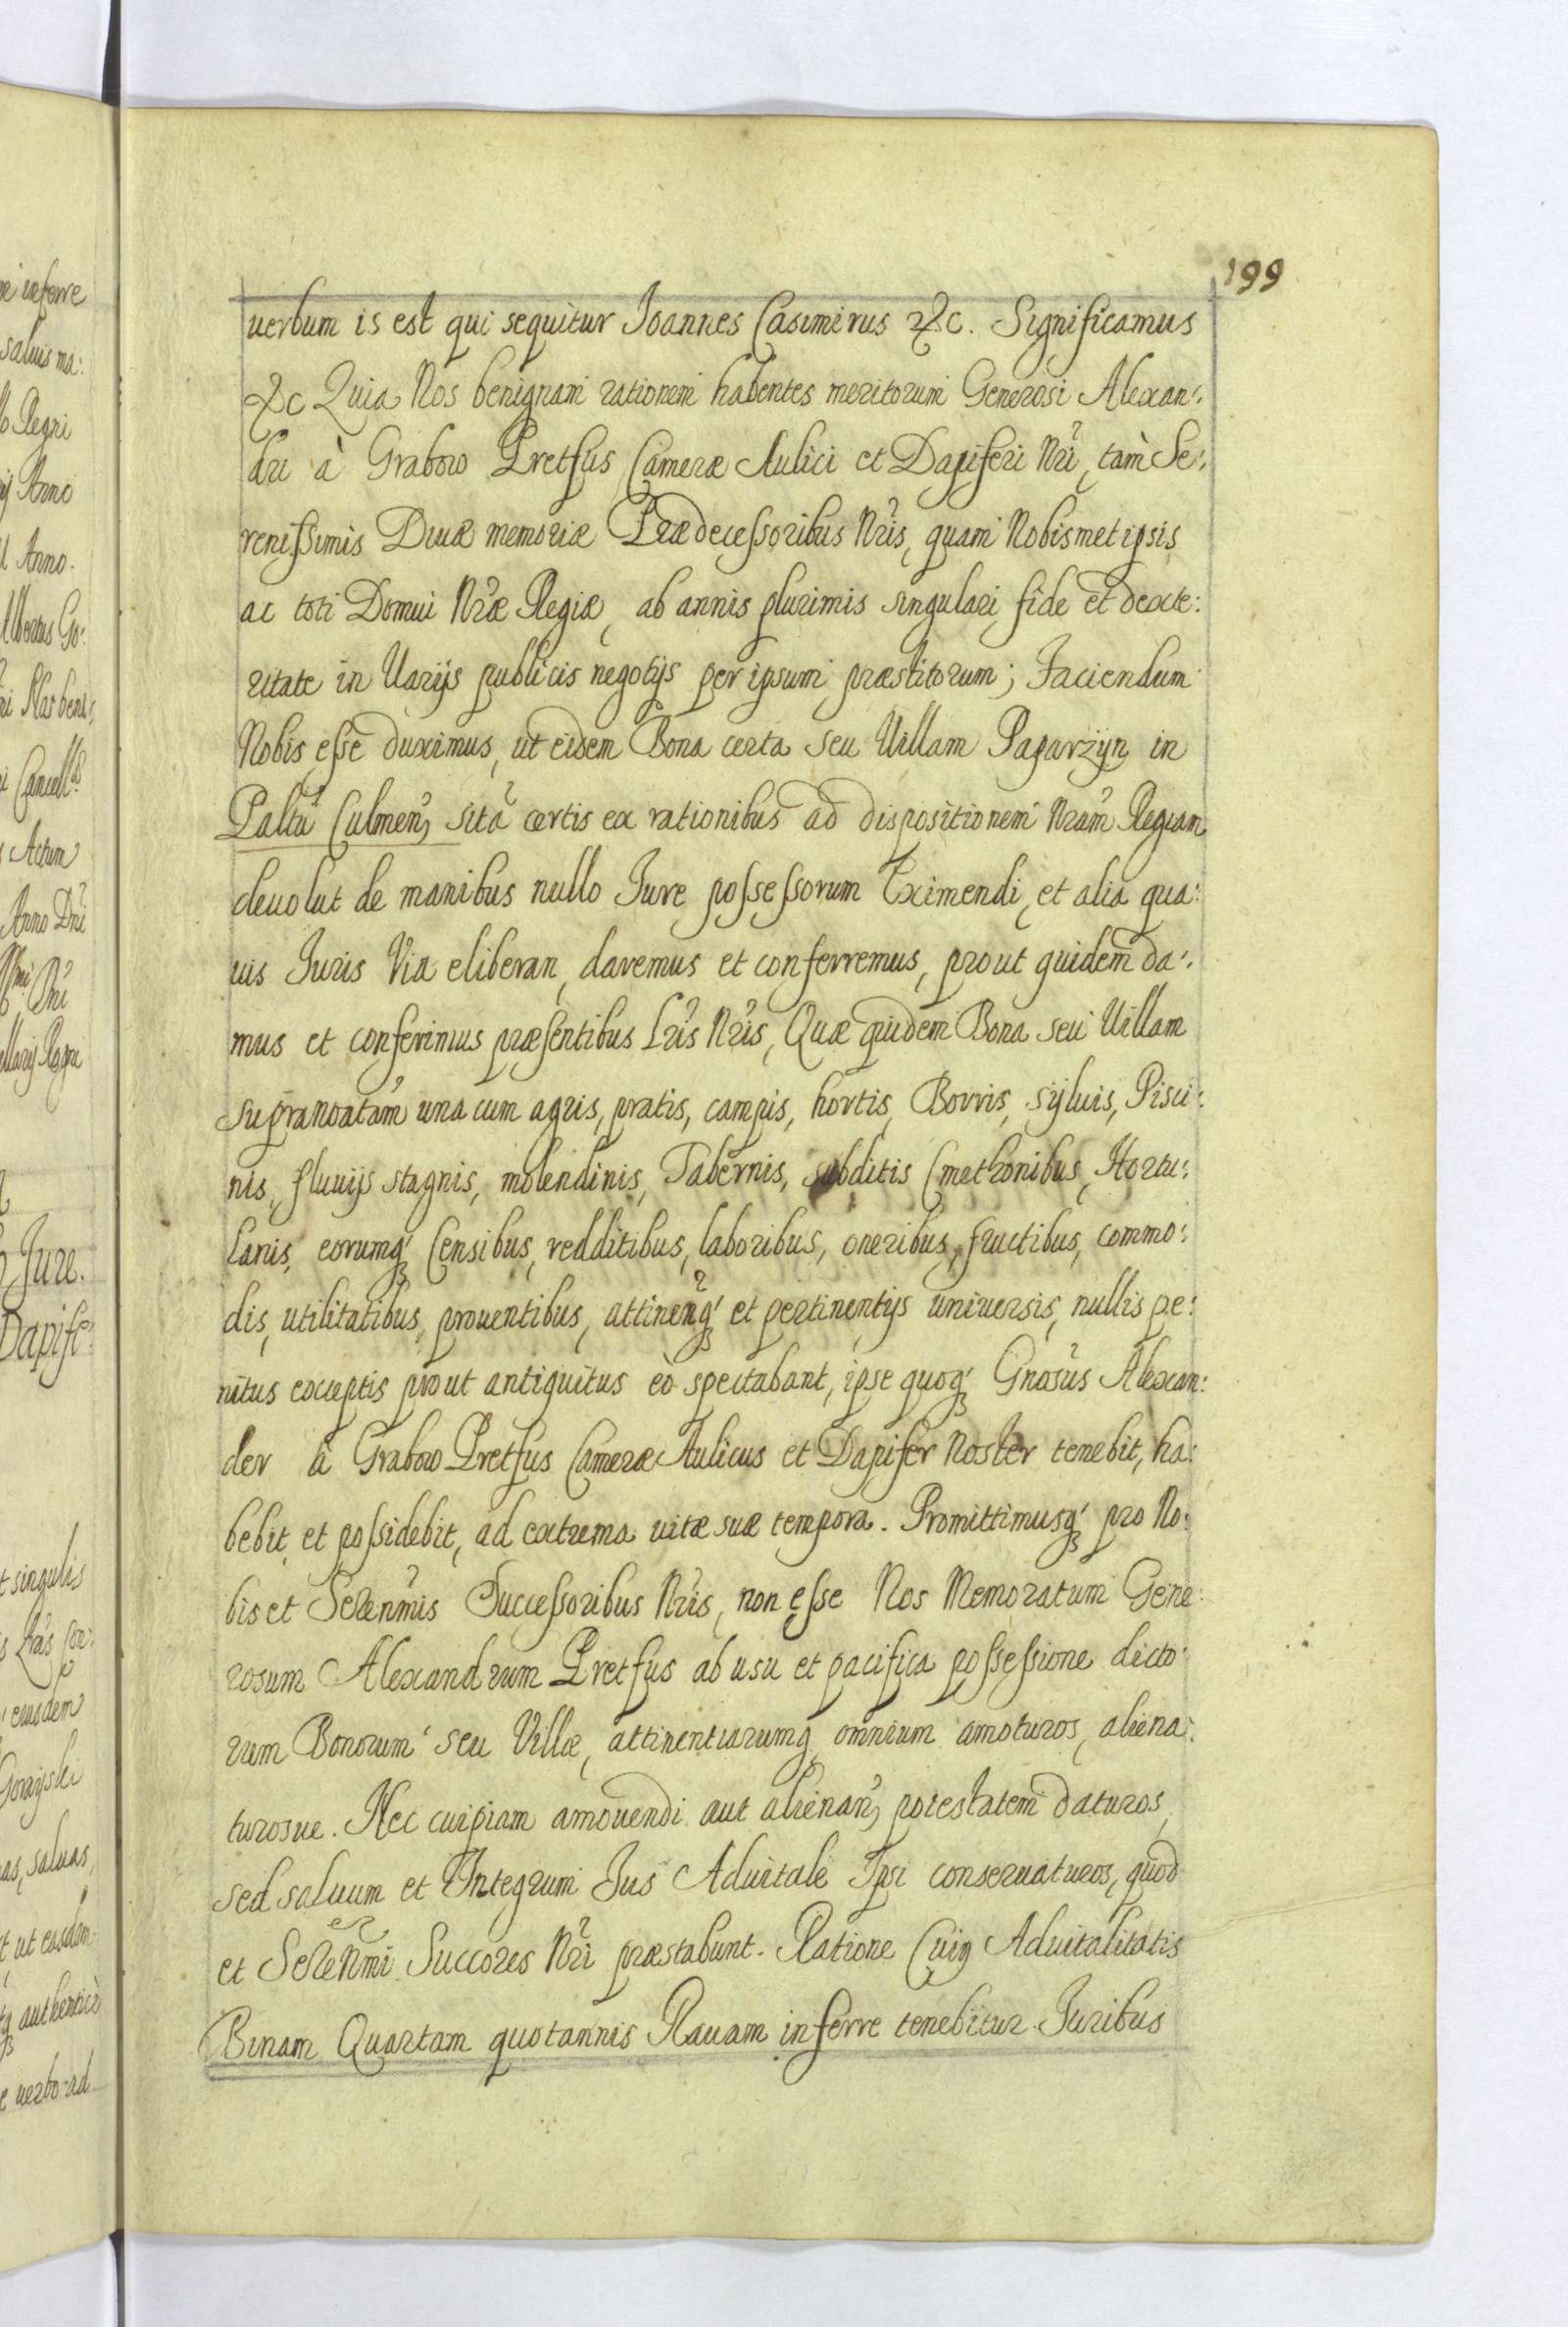 199
uerbum is est qui sequitur Joannes Casimirus &c. Significamus
&c Quia Nos benignam rationem habentes meritorum Generosi Alexan:
dri à Grabow Pretfus Cameræ Aulici et Dapiferi Nri, tàm Se:
renissimis Diuæ memoriæ Prædecessoribus Nris, quam Nobismet ipsis
ac toti Domui Nræ Regiæ, ab annis plurimis singulari fide et dexte:
ritate in Uarijs publicis negotijs per ipsum præstitorum; Faciendum
Nobis esse duximus, ut eidem Bona certa seu Uillam Paparzyn in
Paltu Culmen, sita certis ex rationibus ad dispositionem Nram Regiam
deuolut de manibus nullo Jure possessorum Eximendi, et alia qua:
uis Juris Via eliberan, daremus et conferremus, prout quidem da:
mus et conferimus præsentibus Lris Nris, Quæ quidem Bona seu Uillam
supranoatam una cum agris, pratis, campis, hortis, Borris, syluis, Pisci:
nis, fluuijs stagnis, molendinis, Tabernis, subditis Cmethonibus, Hortu:
lanis, eorumq Censibus, redditibus, laboribus, oneribus, fructibus, commo:
dis, utilitatibus, prouentibus, attinenq et pertinentijs uniuersis, nullis pe:
nitus exceptis prout antiquitus eò spectabant, ipse quoq Gnosus Alexan:
der à Grabow Pretfus Cameræ Aulicus et Dapifer Noster tenebit, ha:
bebit et possidebit, ad extrema uitæ suæ tempora. Promittimusq pro No:
bis et Serenmis Successoribus Nris, non esse Nos Memoratum Gene:
rosum Alexandrum Pretfus ab usu et pacifica possessione dicto:
rum Bonorum seu Villæ, attinentiarumq omnium amoturos, aliena:
turosue. Nec cuipiam amouendi aut alienan, potestatem daturos,
sed saluum et Integrum Jus Aduitale Ipsi conseruaturos, quod
et Serenmi Succores Nri præstabunt. Ratione Cuiq Aduitalitatis
Binam Quartam quotannis Rauam inferre tenebitur Juribus